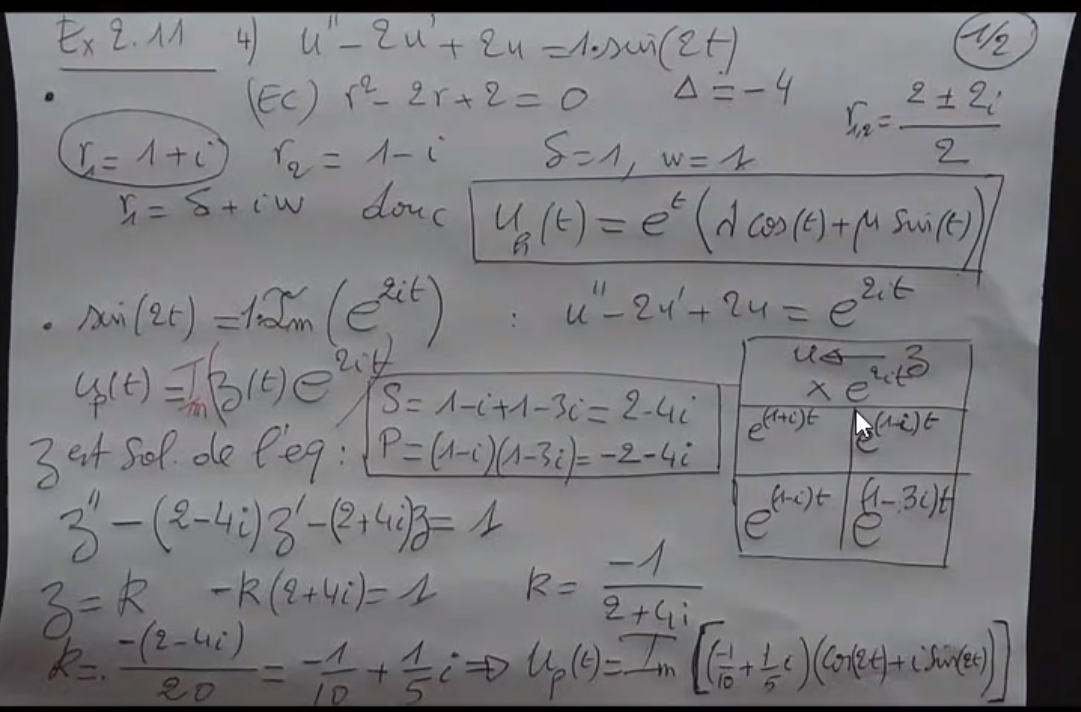 Ex 2.11 4) u'' - 2u' + 2u = 1·sin(2t) 1/2
• (EC) r² - 2r + 2 = 0 Δ = -4 r₁,₂ = (2 ± 2i)/2
r₁ = 1 + i r₂ = 1 - i δ = 1, w = 1
r₁ = δ + iw donc u_h(t) = e^t (λ cos(t) + μ sin(t))
• sin(2t) = 1·Im(e^{2it}) : u'' - 2u' + 2u = e^{2it}
u_p(t) = Im(z(t) e^{2it}
z est Sol. de l'éq :
S = 1-i+1-3i = 2-4i
P = (1-i)(1-3i) = -2-4i
u ← z
× e^{2it}
e^{(1+i)t} e^{(1-i)t}
e^{(1-i)t} e^{(1-3i)t}
z'' - (2-4i)z' - (2+4i)z = 1
z = k -k(2+4i) = 1 k = -1/(2+4i)
k = -(2-4i)/20 = -1/10 + 1/5 i ⇒ u_p(t) = Im[(-1/10 + 1/5 i)(cos(2t) + i sin(2t))]